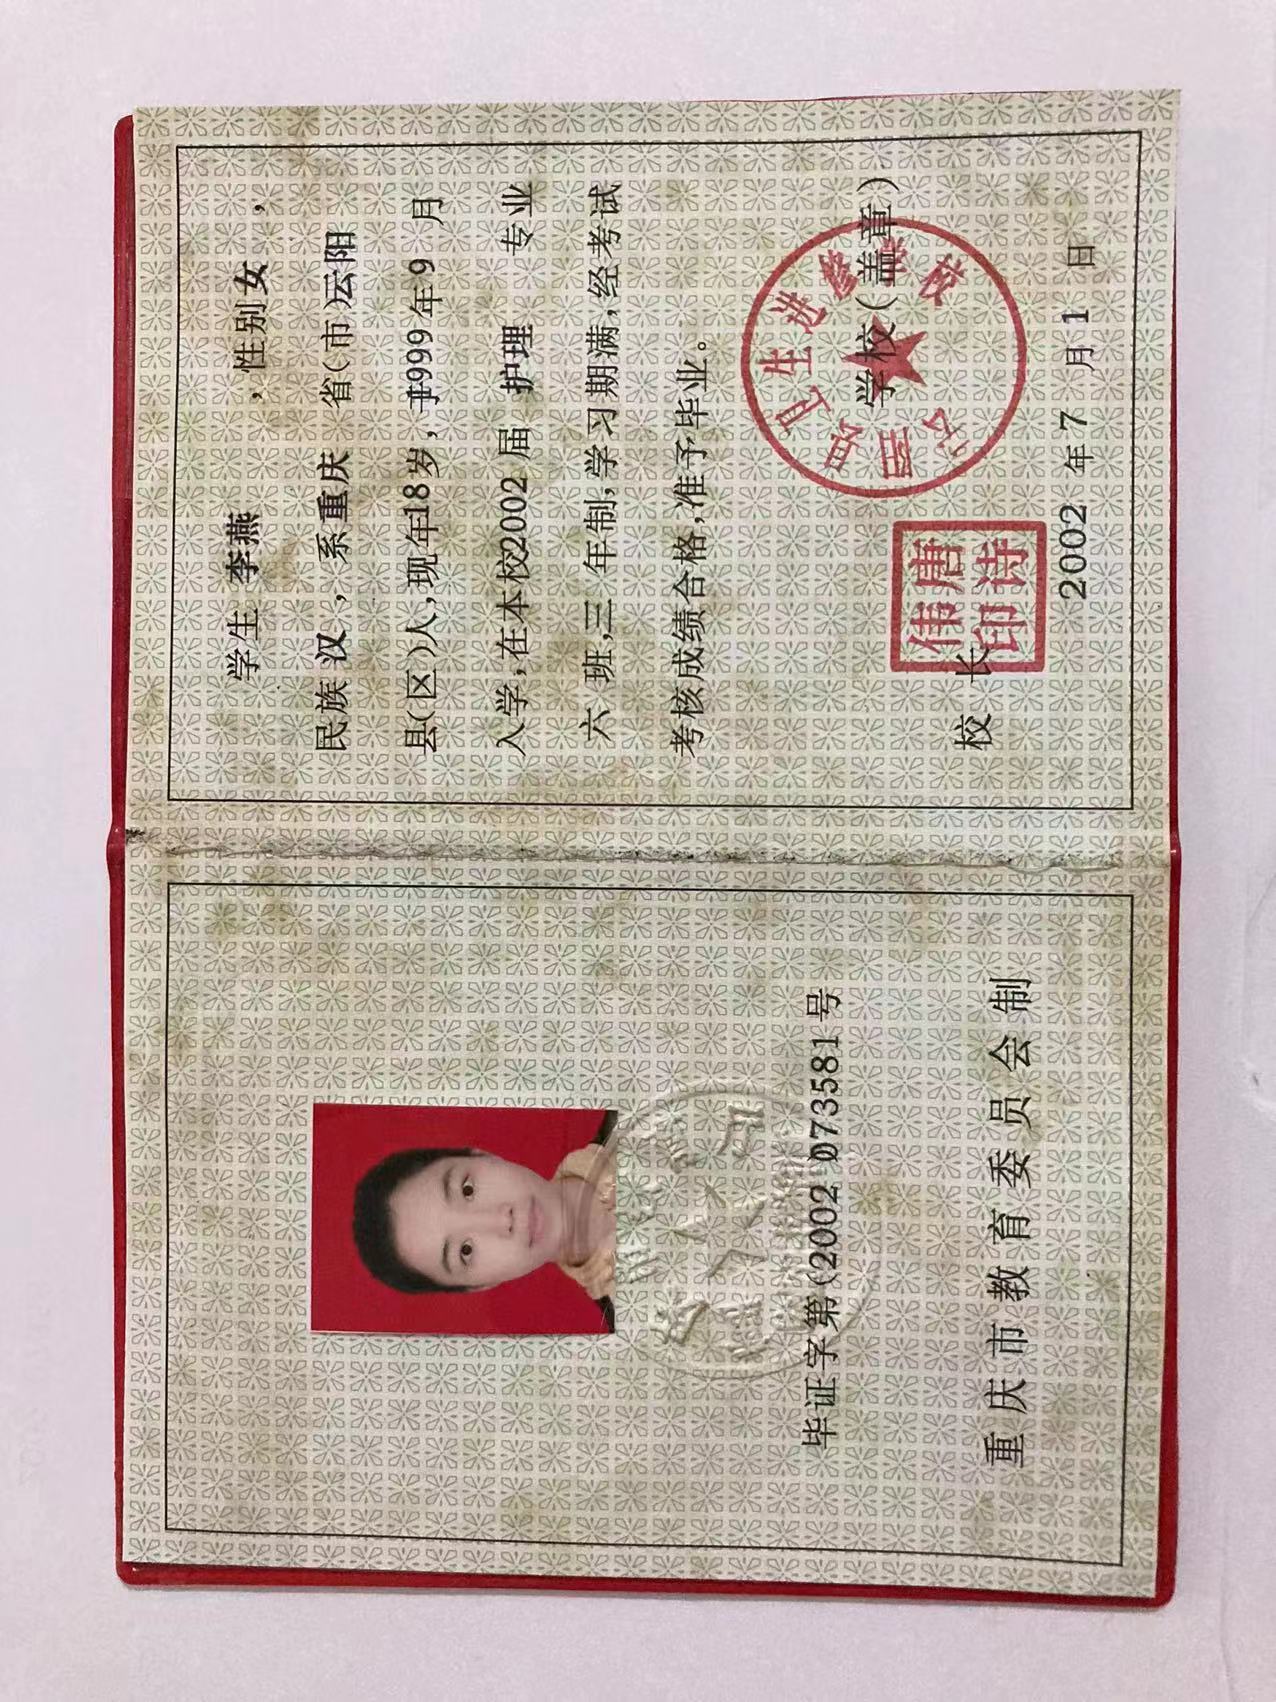 毕证字第(2002 073581号
重庆市教育委员会制
学生 李燕 ，性别 女，
民族 汉，系 重庆 省(市)云阳
县(区)人，现年18岁，于1999年9月
入学，在本校2002届 护理 专业
六 班，三年制，学习期满，经考试
考核成绩合格，准予毕业。
云阳县卫生进修学校
学校(盖章)
校长
唐诗伟印
2002年7月1日